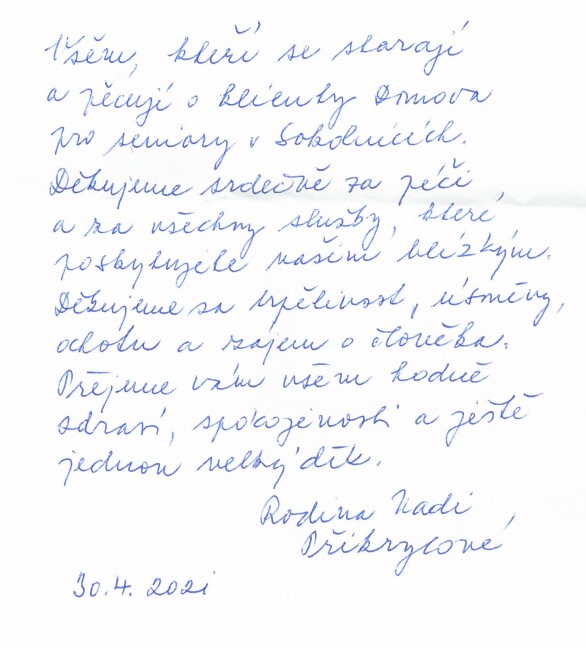 Všem, kteří se starají
a pěčují o klienty Domova
pro seniory v Sokolnicích.
Děkujeme srdečně za péči,
a za všechny služby, které
poskytujete našim blízkým.
Děkujeme za trpělivost, úsměvy,
ochotu a zájem o člověka.
Přejeme vám všem hodně
zdraví, spokojenosti a ještě
jednou velký dík.
Rodina Nadi
Přikrylové
30.4. 2021